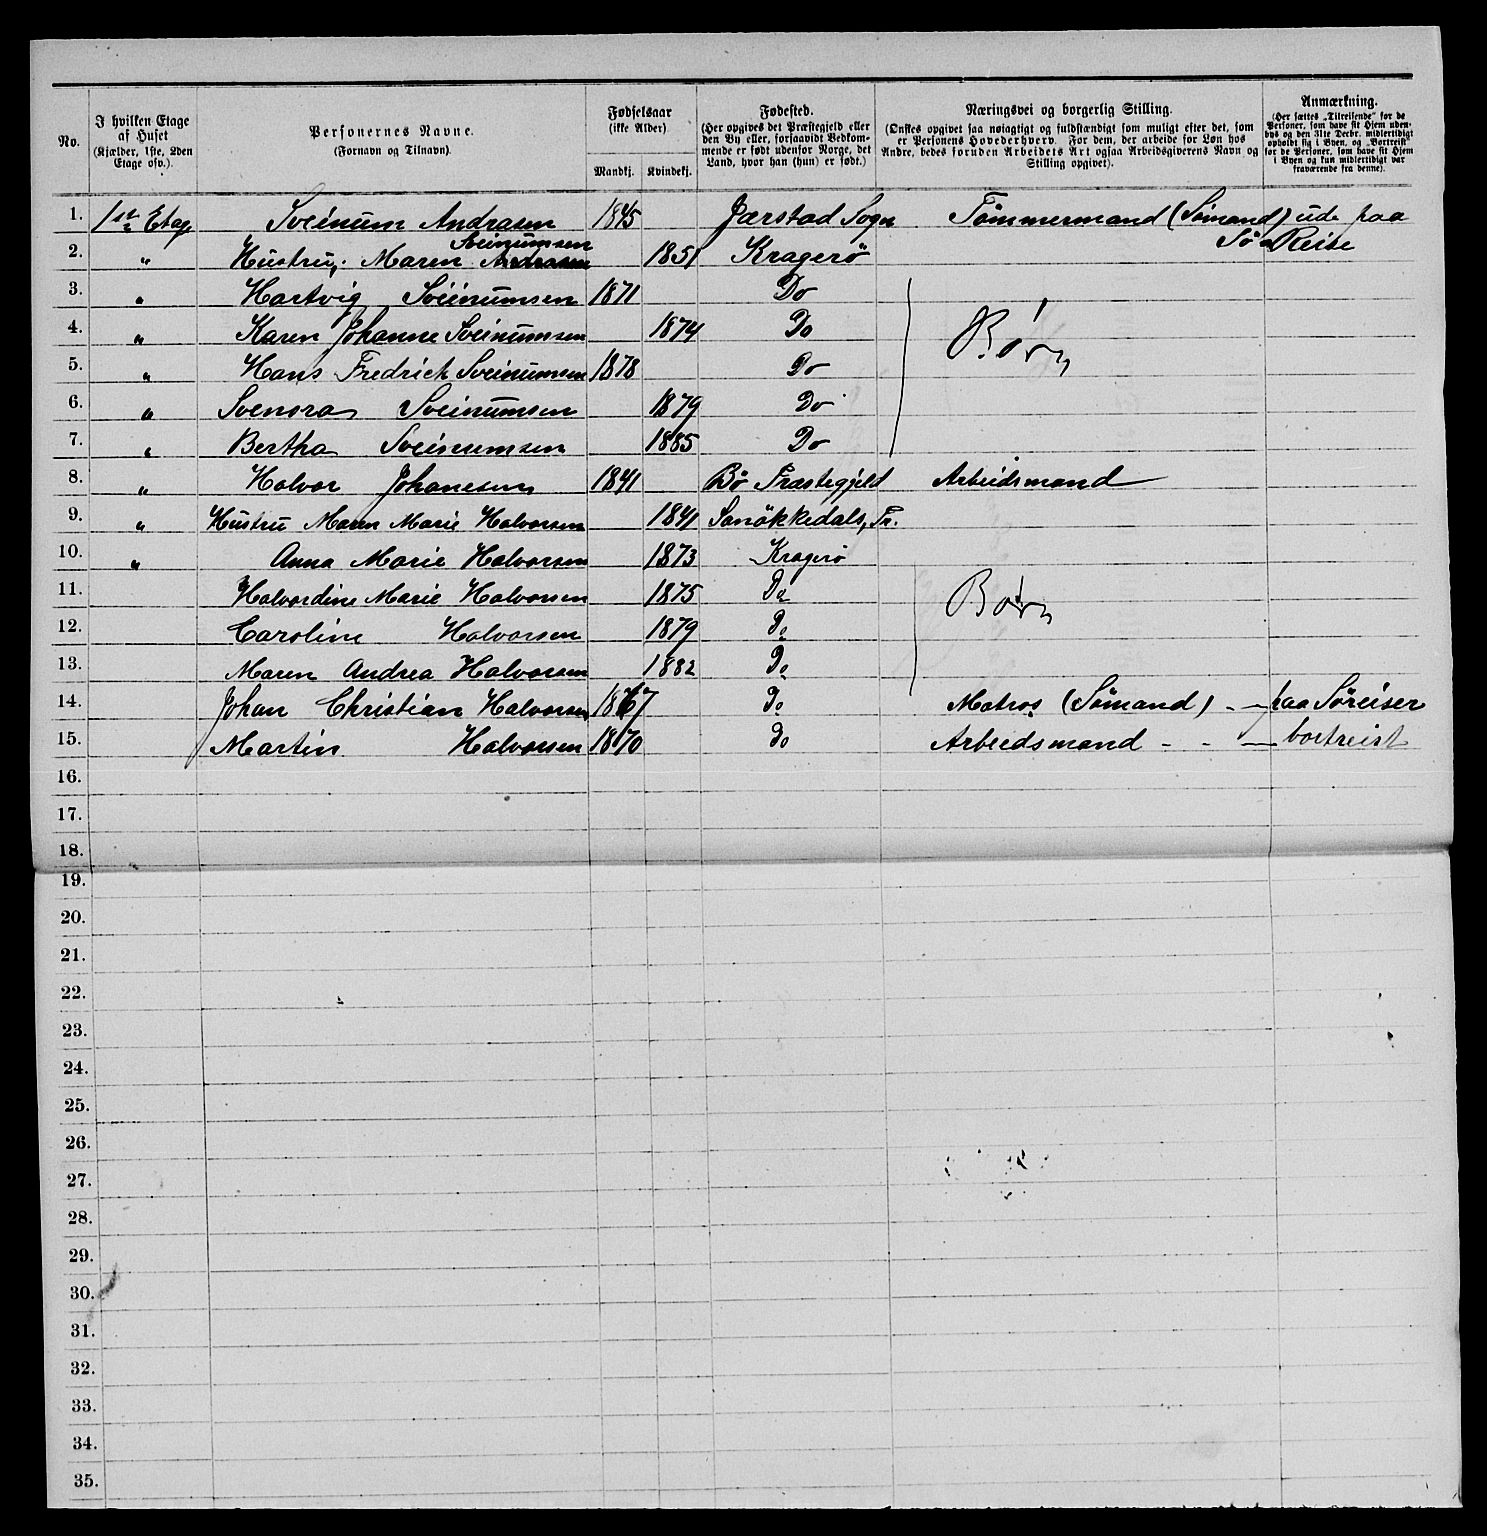 No.
I hvilken Etage af Huset (Kjælder, 1ste, 2den Etage osv.).
Personernes Navne. (Fornavn og Tilnavn).
Fødselsaar (ikke Alder)
Mandkj. Kvindekj.
Fødested. (Her opgives det Præstegjeld eller den By eller, forsaavidt Vedkommende er født udenfor Norge, det Land, hvor han (hun) er født.)
Næringsvei og borgerlig Stilling. (Ønskes opgivet saa nøiagtigt og fuldstændigt som muligt efter det, som er Personens Hovederhverv. For dem, der arbeide for Løn hos Andre, bedes foruden Arbeidets Art ogsaa Arbeidsgiverens Navn og Stilling opgivet).
Anmærkning. (Her sættes „Tilreisende" for de Personer, som have sit Hjem udenbys og den 31te Decbr. midlertidigt opholdt sig i Byen, og „Bortreist" for de Personer, som have sit Hjem i Byen og kun midlertidigt var fraværende fra denne).
1. 1st Etag Sveinum Andrasen 1845 Jærstad Sogn Tömmermand (Sömand) ude paa
Sö Reise
Sveinumsen
2. " Hustru, Maren Andrasen 1851 Kragerö
3. " Hartvig Sveinumsen 1871 Do
4. " Karen Johanne Sveinumsen 1874 Do Børn
5. " Hans Fredrich Sveinumsen 1878 Do
6. " Svenora Sveinumsen 1879 Do
7. " Bertha Sveinumsen 1885 Do
8. " Halvor Johanesen 1841 Bö Præstegjeld Arbeidsmand
9. " Hustru Maren Marie Halvorsen 1841 Sanökkedals, Pr.
10. " Anna Marie Halvorsen 1873 Kragerö
11. Halvordine Marie Halvorsen 1875 Do Børn
12. Caroline Halvorsen 1879 Do
13. Maren Andrea Halvorsen 1882 Do
14. Johan Christian Halvorsen 1867 Do Matros (Sömand) - - paa Söreiser
15. Martin Halvorsen 1870 Do Arbeidsmand - - - bortreist
16.
17.
18.
19.
20.
21.
22.
23.
24.
25.
26.
27.
28.
29.
30.
31.
32.
33.
34.
35.